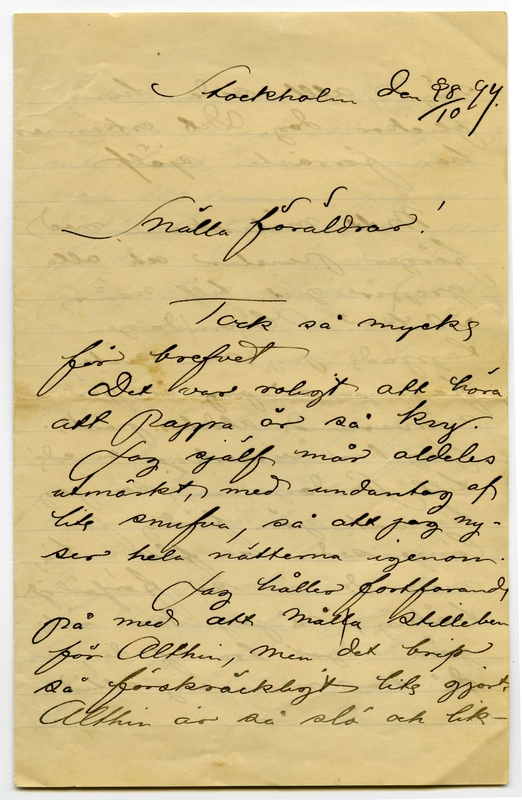 Stockholm den 28/10 97.
Snälla föräldrar!
Tack så mycke
för brefvet
Det var roligt att höra
att Pappa är så kry.
Jag själf mår aldeles
utmärkt, med undantag af
lite snufva, så att jag ny-
ser hela nätterna igenom.
Jag håller fortfarande
på med att måla stilleben
för Althin, men det blir
så förskräckligt lite gjort.
Althin är så slö och lik-